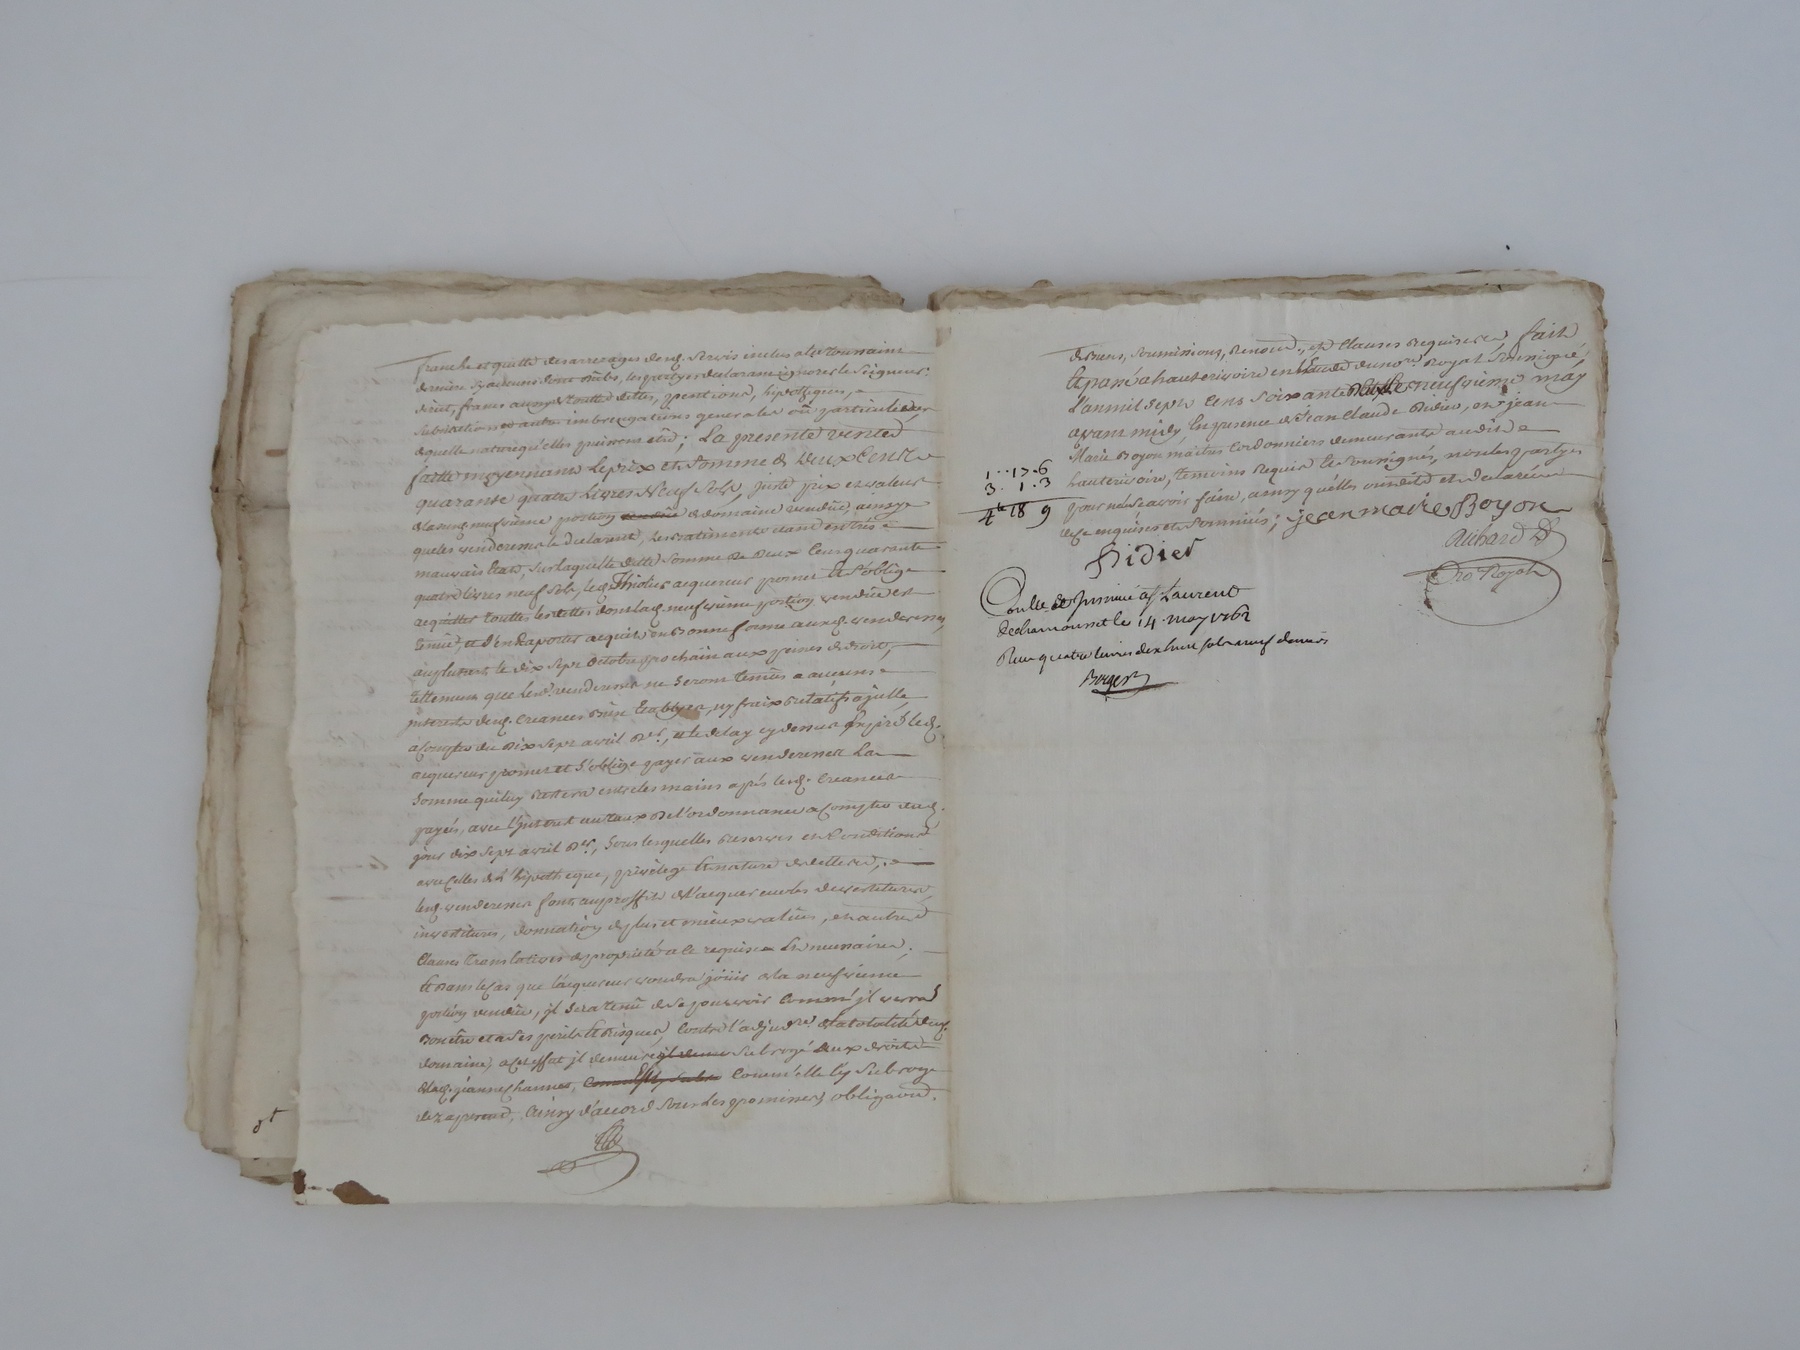 franche et quitte des arrerages desd. servis inclus a la toussaint
derniere sy aucuns sont dûbs, les partyes declarant ignorer le seigneur
direct, franc aussy de toutte dettes, pentions, hipotheques,
substitutions et autres imbrigations generales où particulieres
de quelle nature qu'elles puissent être; La presente vente
faitte moyennant le prix et somme de deux cents
quarante quatre livres neuf sols, juste prix et valeur
de la susd. neufvieme portion de domaine vendüe, ainsy
que les venderesses le declarent, les batiments etant en très
mauvais état, sur laquelle ditte somme de deux cens quarante
quatre livres neuf sols, led. Thiolier acquereur promet et s'oblige
acquitter touttes les dettes dont lad. neufvieme portion vendüe est
tenüe, et d'en raporter acquit en bonne forme auxd. venderesses,
au plus tard le dix sept octobre prochain aux peines de droit,
tellement que lesd. venderesses ne seront tenües a aucuns
interets desd. creances, ny fraix relatifs a jcelle,
a compter du dix sept avril der., et le delay cy dessus expiré led.
acquereur promet et s'oblige payer aux venderesses la
somme qui luy restera entre les mains après lesd. creances
payés, avec l'jnteret au taux de l'ordonnance a compter dud.
jour dix sept avril der., sous lesquelles reserves et conditions
avec celles de l'hipotheque, privilege et nature de dettes,
lesd. venderesses font au proffit de l'acquereur les devestitures,
investitures, donnation de plus et mieux values, et autres
clauses translatives de propriété a ce requises et necessaires.
Et dans le cas que l'acquereur voudra joüir de la neufvieme
portion vendüe, jl sera tenü de se pourvoir comme jl verra
bon être et a ses perils et risques, contre l'adjudre. de la totalité dud.
domaine, a cet effet jl demeure subrogé aux droits
de lad. jeanne, comme elle l'y subroge
dez a present, ainsy d'accord sous les promesses, obligaons.
de biens, soumissions, renonc., et clauses requises, fait
et passé a hauterivoire en l'etude du nore. Royal soussigné,
L'an mil sept cens soixante et le neufvieme may
avant midy, en presence de Jean Claude Didier, et jean
Marie Boyon maitres cordonniers demeurants audit
hauterivoire, temoins requis et soussignés, non les partyes
pour ne sçavoir faire, ainsy qu'elles ont dit et declaré
de ce enquises et sommées; jean marie Boyon
1 · 17 · 6
3 · 1 · 3
4 lt 18 9
Didier
Richard
No Royal
Conlle. et insinué a St Laurent
de chamousset le 14. may 1762
Reçu quatre livres dix huit sols neuf deniers
Boyer